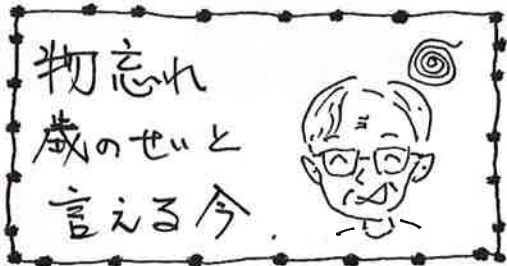 物忘れ
歳のせいと
言える今.